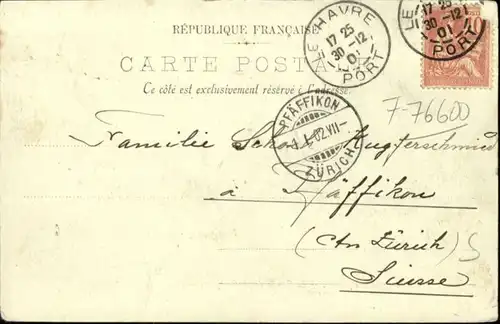 RÉPUBLIQUE FRANÇAISE
CARTE POSTA
Ce côté est exclusivement réservé à l'adresse.
LE HAVRE
17 25
30 -12
01
PORT
LE
17 25
30 -12
01
PORT
10
PFÄFFIKON
1.1.02.VII-
ZÜRICH
7-76600
Familie
à Pfäffikon
(Ct Zürich)
Suisse
S